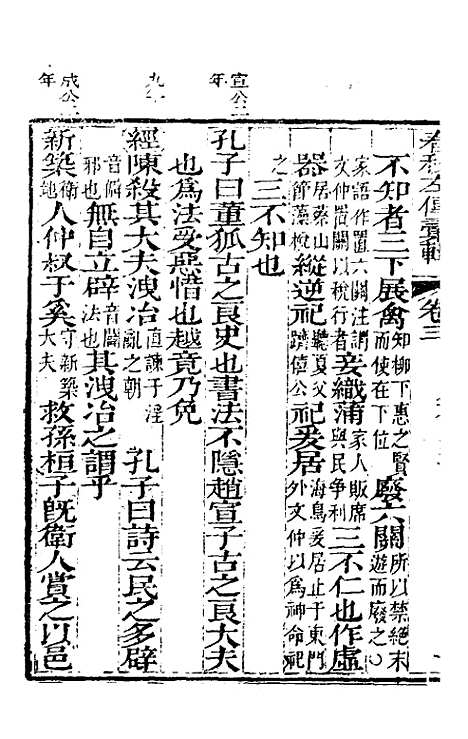 春秋左傳彙輯 卷三
不知者三下展禽知柳下惠之賢而使在下位廢六關所以禁絕末遊而廢之○
家語作置六關注謂文仲置關以稅行者妾織蒲家人販席與民爭利三不仁也作虛
器居蔡山節藻梲縱逆祀聽夏父躋僖公祀爰居海鳥爰居止于東門外文仲以爲神命祀
之三不知也
宣公二年
孔子曰董狐古之良史也書法不隱趙宣子古之良大夫
也爲法受惡惜也越竟乃免
九年
經陳殺其大夫洩冶直諫于淫亂之朝 孔子曰詩云民之多辟
音僻邪也無自立辟音闢法也其洩冶之謂乎
成公二年
新築衛地人仲叔于奚守新築大夫救孫桓子旣衛人賞之以邑